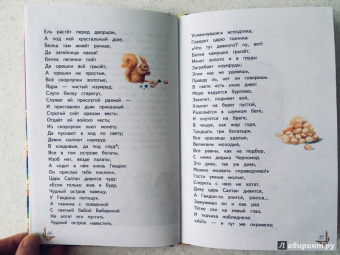 Ель растёт перед дворцом,
А под ней хрустальный дом;
Белка там живёт ручная,
Да затейница какая!
Белка песенки поёт
Да орешки всё грызёт,
А орешки не простые,
Всё скорлупки золотые,
Ядра — чистый изумруд;
Слуги белку стерегут,
Служат ей прислугой разной —
И приставлен дьяк приказный
Строгий счёт орехам весть;
Отдаёт ей войско честь;
Из скорлупок льют монету
Да пускают в ход по свету;
Девки сыплют изумруд
В кладовые, да под спуд;
Все в том острове богаты,
Изоб нет, везде палаты;
А сидит в нём князь Гвидон;
Он прислал тебе поклон».
Царь Салтан дивится чуду:
«Если только жив я буду,
Чудный остров навещу,
У Гвидона погощу».
А ткачиха с поварихой
С сватьей бабой Бабарихой
Не хотят его пустить
Чудный остров навестить.
Усмехнувшись исподтиха,
Говорит царю ткачиха:
«Что тут дивного? ну, вот!
Белка камушки грызёт,
Мечет золото и в груды
Загребает изумруды;
Этим нас не удивишь,
Правду ль, нет ли говоришь.
В свете есть иное диво:
Море вздуется бурливо,
Закипит, подымет вой,
Хлынет на берег пустой,
Разольётся в шумном беге,
И очутятся на бреге,
В чешуе, как жар горя,
Тридцать три богатыря,
Все красавцы удалые,
Великаны молодые,
Все равны, как на подбор,
С ними дядька Черномор.
Это диво, так уж диво,
Можно молвить справедливо!»
Гости умные молчат,
Спорить с нею не хотят.
Диву царь Салтан дивится,
А Гвидон-то злится, злится...
Зажужжал он и как раз
Тётке сел на левый глаз,
И ткачиха побледнела:
«Ай!» — и тут же окривела;
Лабиринт.ру